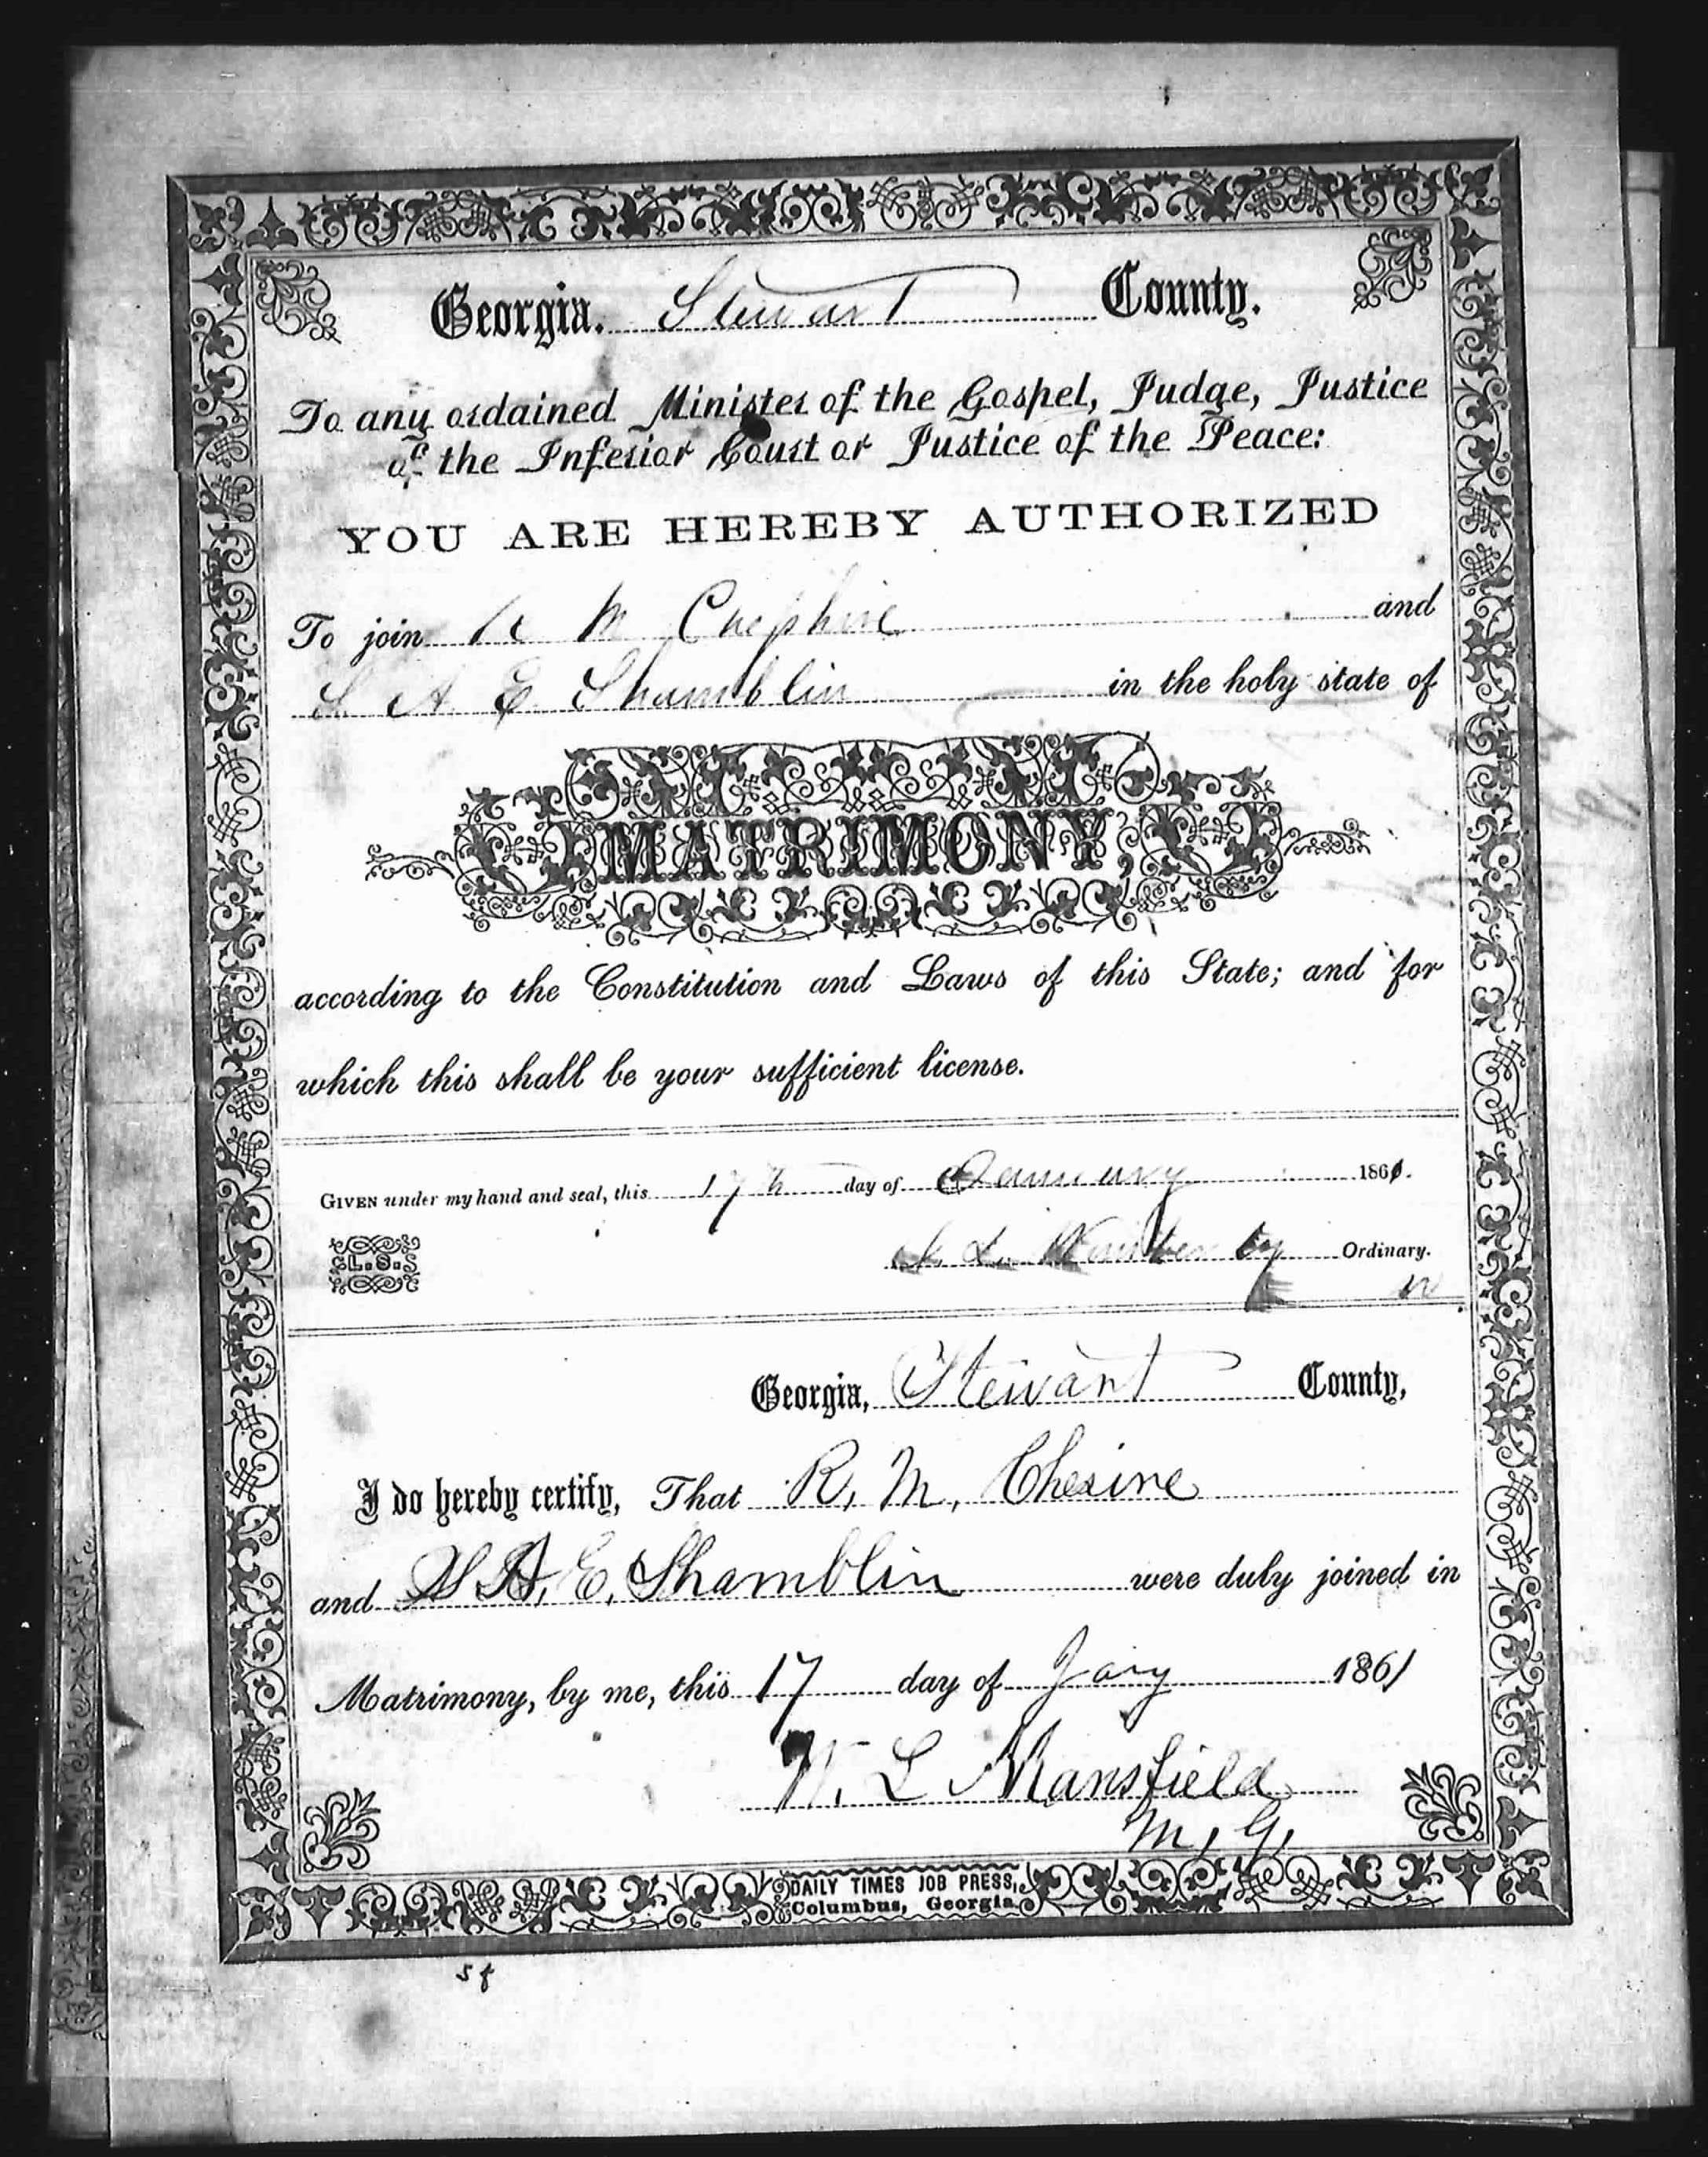 Georgia. Stewart County.
To any ordained Minister of the Gospel, Judge, Justice
of the Inferior Court or Justice of the Peace:
YOU ARE HEREBY AUTHORIZED
To join R M and
S A E Shamblin in the holy state of
MATRIMONY,
according to the Constitution and Laws of this State; and for
which this shall be your sufficient license.
GIVEN under my hand and seal, this 17th day of January 1861.
L. S.
Ordinary.
Georgia, Stewart County,
I do hereby certify, That R. M. Chesire
and S A. E. Shamblin were duly joined in
Matrimony, by me, this 17 day of Jany 1861
W. L Mansfield
M. G.
DAILY TIMES JOB PRESS,
Columbus, Georgia.